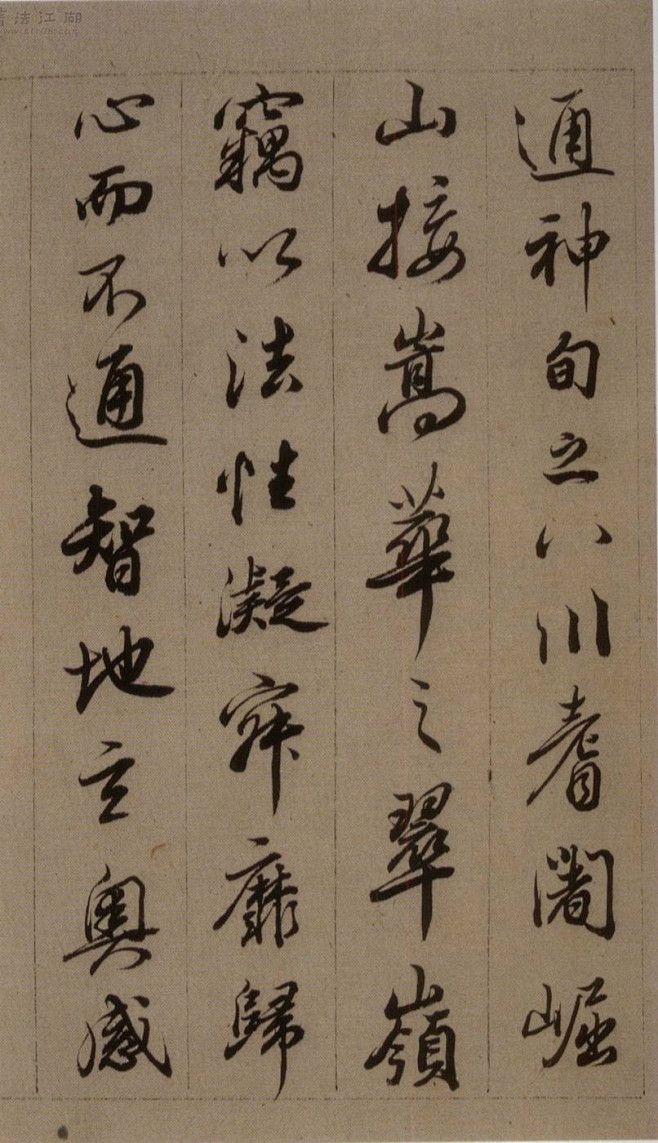 書法江湖
通神甸之八川耆闍崛
山接嵩華之翠嶺
竊以法性凝寂靡歸
心而不通智地玄奥感